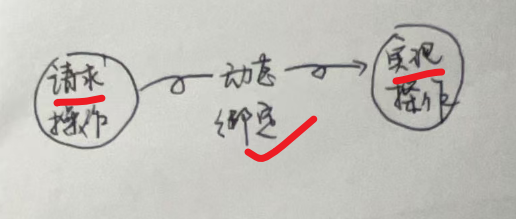 请求
操作
动态
绑定
实现
操作